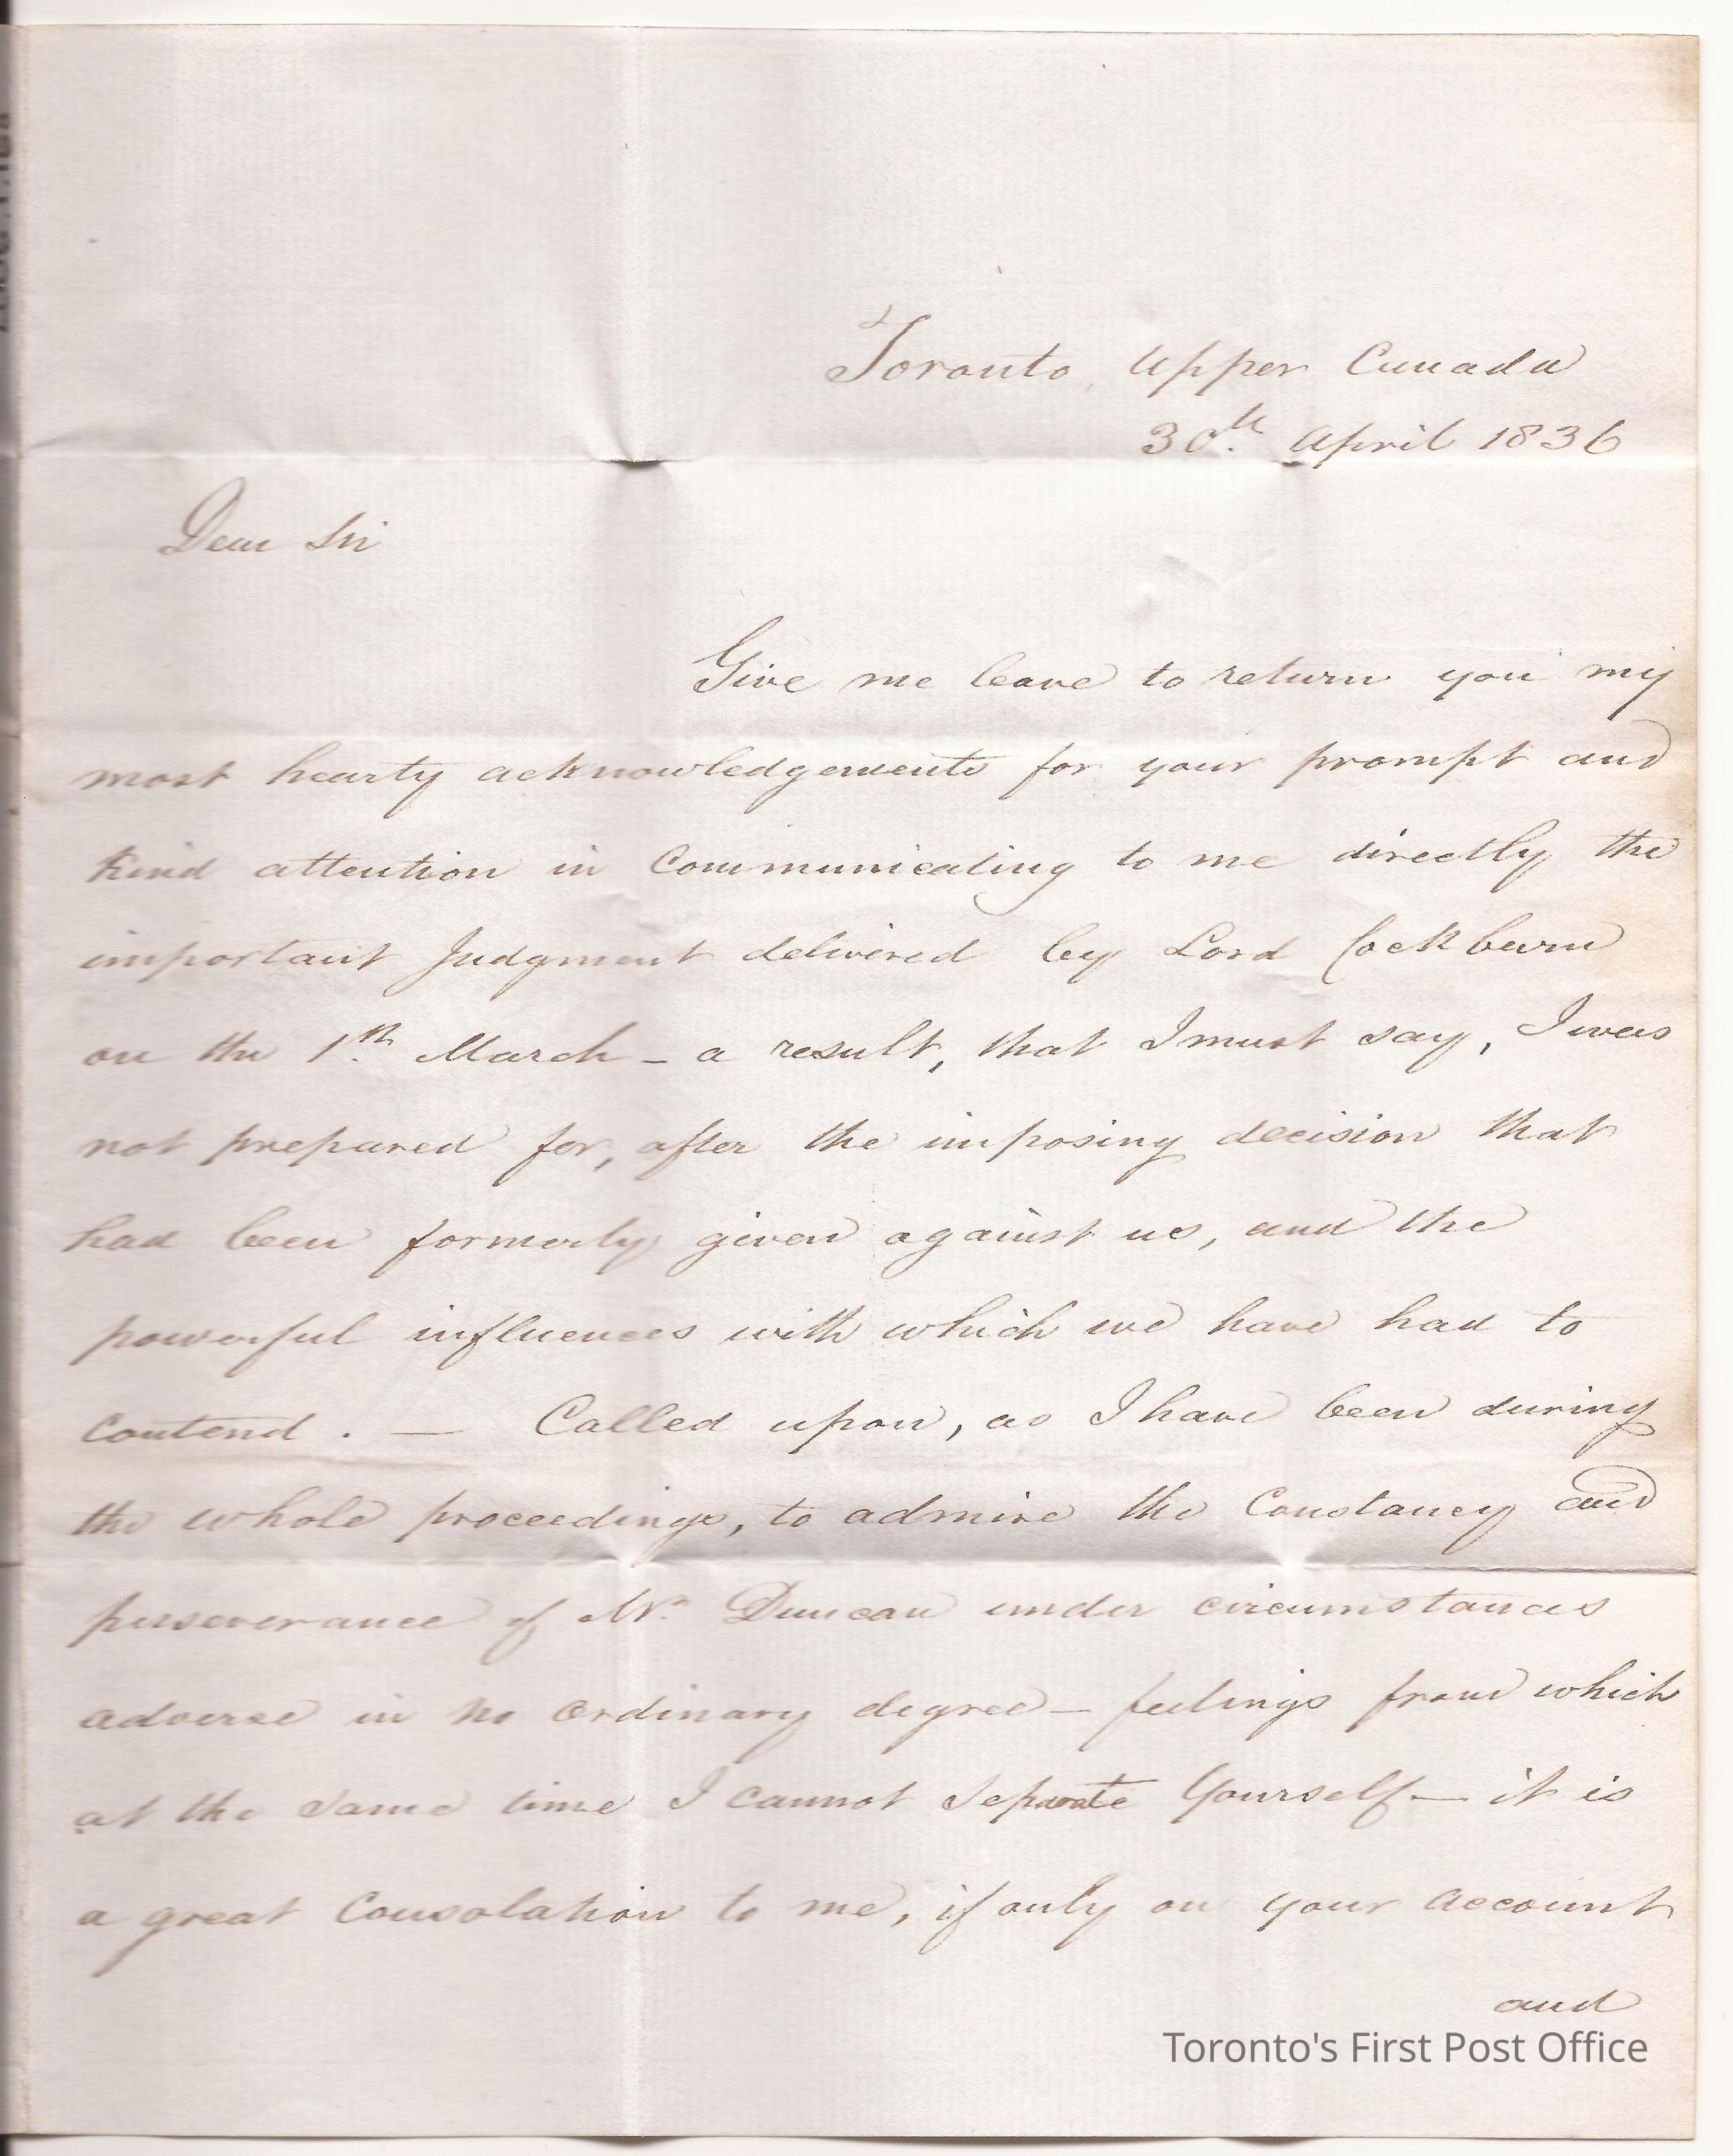 Toronto, Upper Canada
30th. April 1836
Dear Sir
Give me leave to return you my
most hearty acknowledgements for your prompt and
kind attention in Communicating to me directly the
important Judgment delivered by Lord Cockburn
on the 1th. March – a result, that I must say, I was
not prepared for, after the imposing decision that
had been formerly given against us, and the
powerful influences with which we have had to
Contend. — Called upon, as I have been during
the whole proceedings, to admire the Constancy and
perseverance of Mr. Duncan under circumstances
adverse in no ordinary degree – feelings from which
at the same time I cannot Separate Yourself — it is
a great Consolation to me, if only on your account
and
Toronto's First Post Office